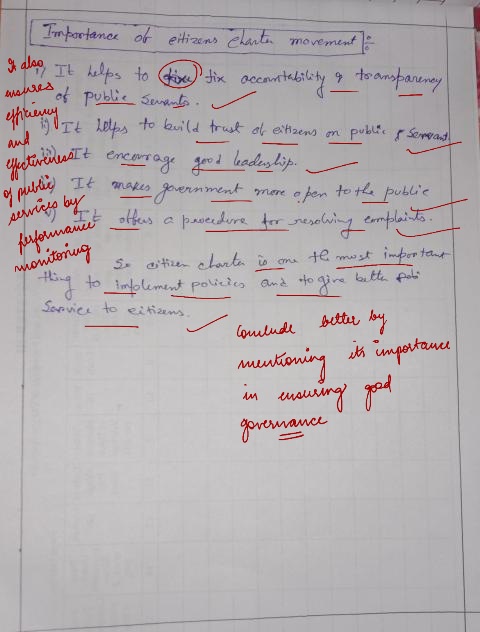 Importance of citizens charter movement :-
i) It helps to fix accountability & transparency
of public Servants.
ii) It helps to build trust of citizens on public & Servant
iii) It encourage good leadership.
iv) It makes government more open to the public
v) It offers a procedure for resolving complaints.
So citizen charter is one the most important
thing to implement policies and to give better
Service to citizens.
It also
ensures
efficiency
and
effectiveness
of public
services by
performance
monitoring
Conclude better by
mentioning its importance
in ensuring good
governance